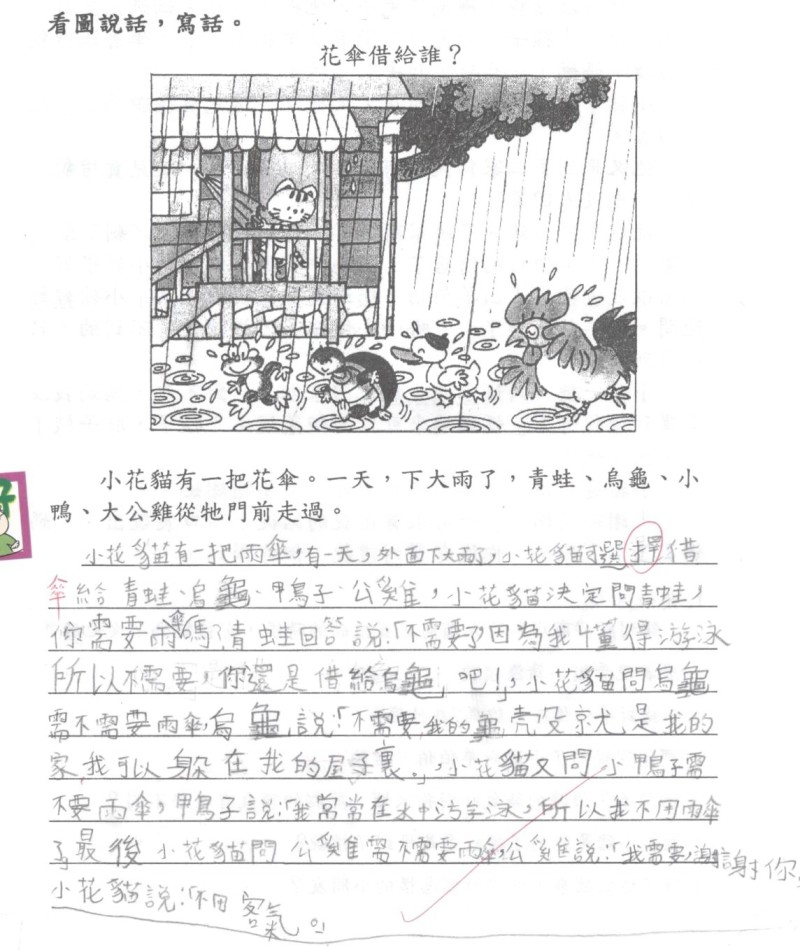 看圖說話,寫話。
花傘借給誰?
小花貓有一把花傘。一天,下大雨了,青蛙、烏龜、小
鴨、大公雞從牠門前走過。
小花貓有一把雨傘,有一天,外面下大雨了,小花貓選擇借
傘給青蛙、烏龜、鴨子、公雞,小花貓決定問青蛙,
你需要雨傘嗎?青蛙回答說:「不需要了因為我懂得游泳
所以不需要,你還是借給烏龜吧!」,小花貓問烏龜
需不需要雨傘,烏龜說:「不需要,我的龜殼就是我的
家,我可以躲在我的屋子裏。」,小花貓又問小鴨子需
不要雨傘,鴨子說:「我常常在水中游泳,所以我不用雨傘
了最後小花貓問公雞需不需要雨傘,公雞說:「我需要,謝謝你」
小花貓說:「不用客氣。」